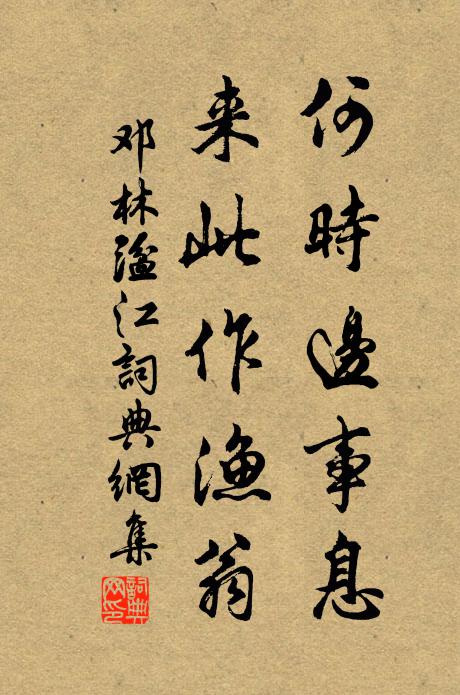 何時邊事息
来此作漁翁
邓林溢江詞典網集
詞典網印